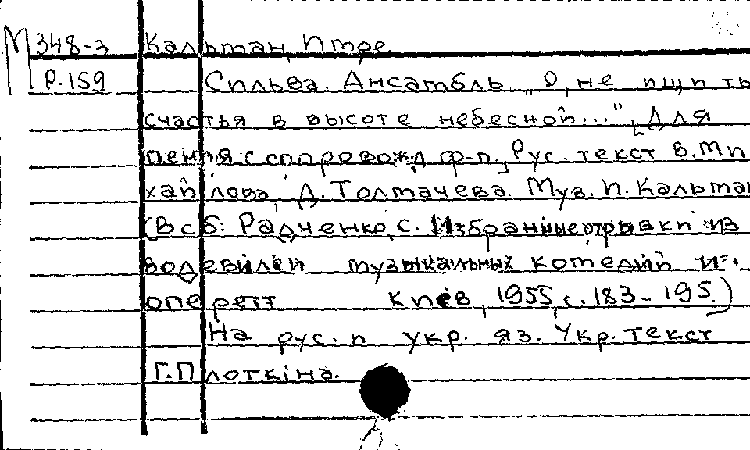 М 348-3 Кальман, Имре
Р.159 Сильва. Ансамбль „О, не ищи ты
счастья в высоте небесной...", [Для
пения с сопровожд. ф-п., Рус. текст В. Ми
хайлова, Д. Толмачева. Муз. И. Кальман
(В сб: Радченко, С. Избранные отрывки из
водевилей музыкальных комедий и
оперетт Киев, 1955, с. 183-195.)
На рус. и укр. яз. Укр. текст
Г. Плоткіна.